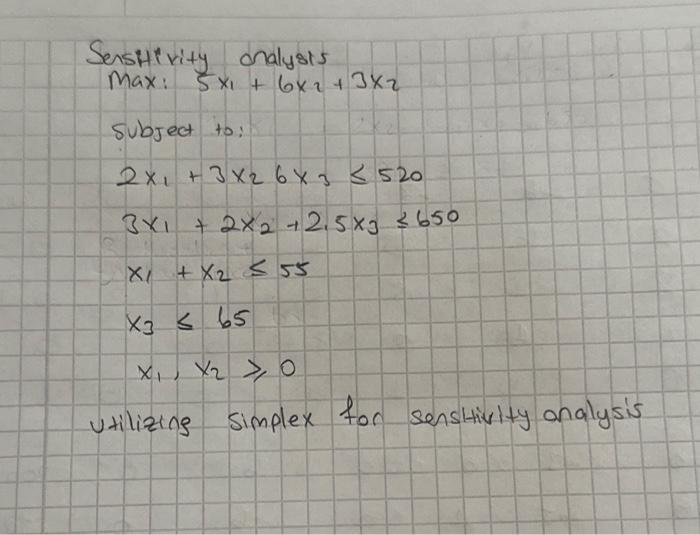 Sensitivity analysis
Max: 5x₁ + 6x₂ + 3x₂
subject to:
2x₁ + 3x₂ 6x₃ ≤ 520
3x₁ + 2x₂ + 2.5x₃ ≤ 650
x₁ + x₂ ≤ 55
x₃ ≤ 65
x₁, x₂ ≥ 0
utilizing simplex for sensitivity analysis